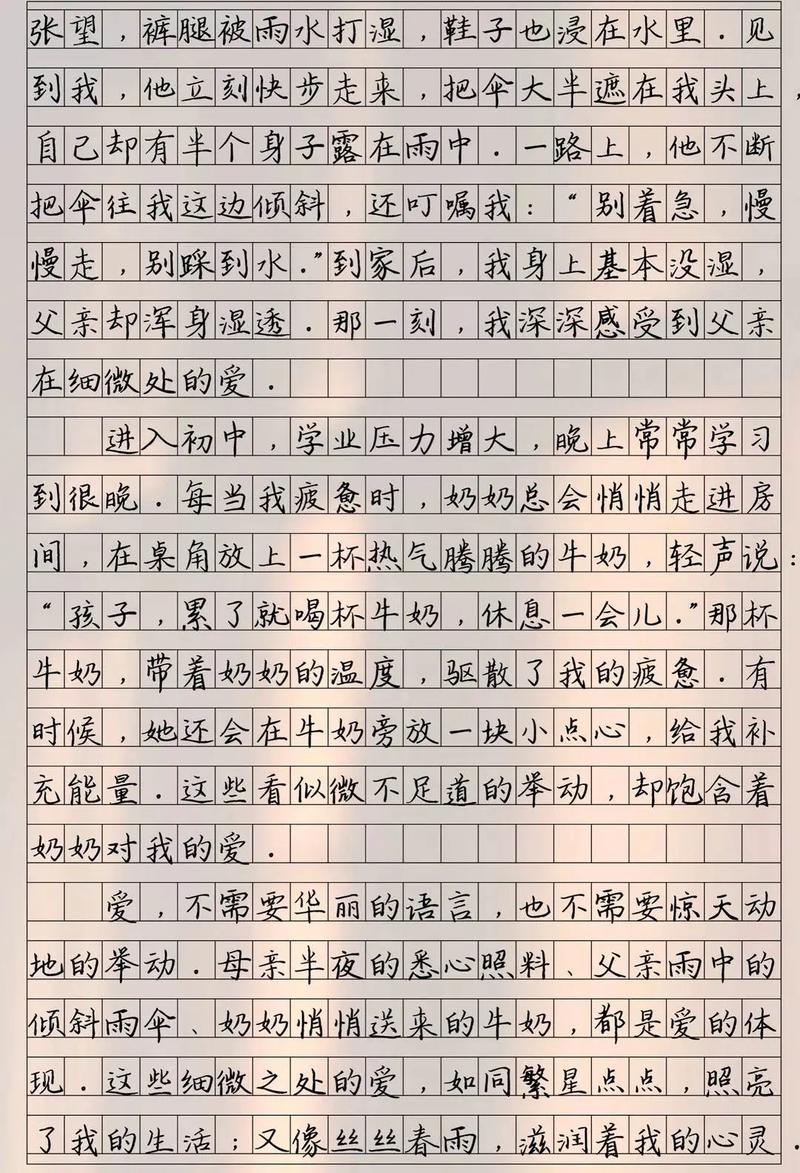 张望，裤腿被雨水打湿，鞋子也浸在水里．见
到我，他立刻快步走来，把伞大半遮在我头上，
自己却有半个身子露在雨中．一路上，他不断
把伞往我这边倾斜，还叮嘱我：“别着急，慢
慢走，别踩到水．”到家后，我身上基本没湿，
父亲却浑身湿透．那一刻，我深深感受到父亲
在细微处的爱．
进入初中，学业压力增大，晚上常常学习
到很晚．每当我疲惫时，奶奶总会悄悄走进房
间，在桌角放上一杯热气腾腾的牛奶，轻声说：
“孩子，累了就喝杯牛奶，休息一会儿．”那杯
牛奶，带着奶奶的温度，驱散了我的疲惫．有
时候，她还会在牛奶旁放一块小点心，给我补
充能量．这些看似微不足道的举动，却饱含着
奶奶对我的爱．
爱，不需要华丽的语言，也不需要惊天动
地的举动．母亲半夜的悉心照料、父亲雨中的
倾斜雨伞、奶奶悄悄送来的牛奶，都是爱的体
现．这些细微之处的爱，如同繁星点点，照亮
了我的生活；又像丝丝春雨，滋润着我的心灵．